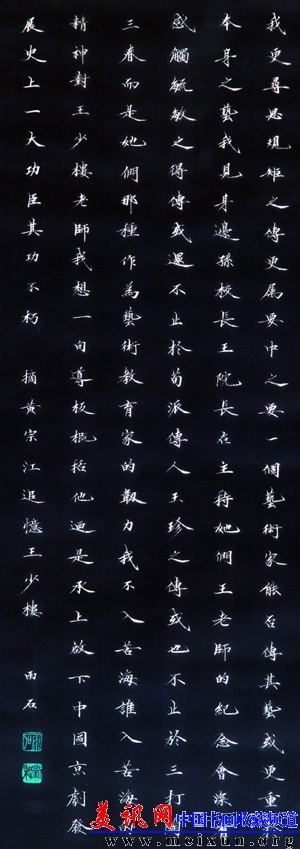 我更尋思規矩之傳更属要中之要一個藝術家能否傳其藝或更重於
本身之藝我見身邊孫校長王院長在主持她們王老師的紀念會深有
感觸毓敏之得傳或還不止於荀派傳人玉珍之傳或也不止於三打陶
三春而是她們那種作為藝術教育家的毅力我不入苦海誰入苦海的
精神對王少樓老師我想一句導板概括他迺是承上啟下中國京劇發
展史上一大功臣其功不朽 摘黄宗江追憶王少樓 雨石
美讯网 中国书画收藏频道
www.meixun.net